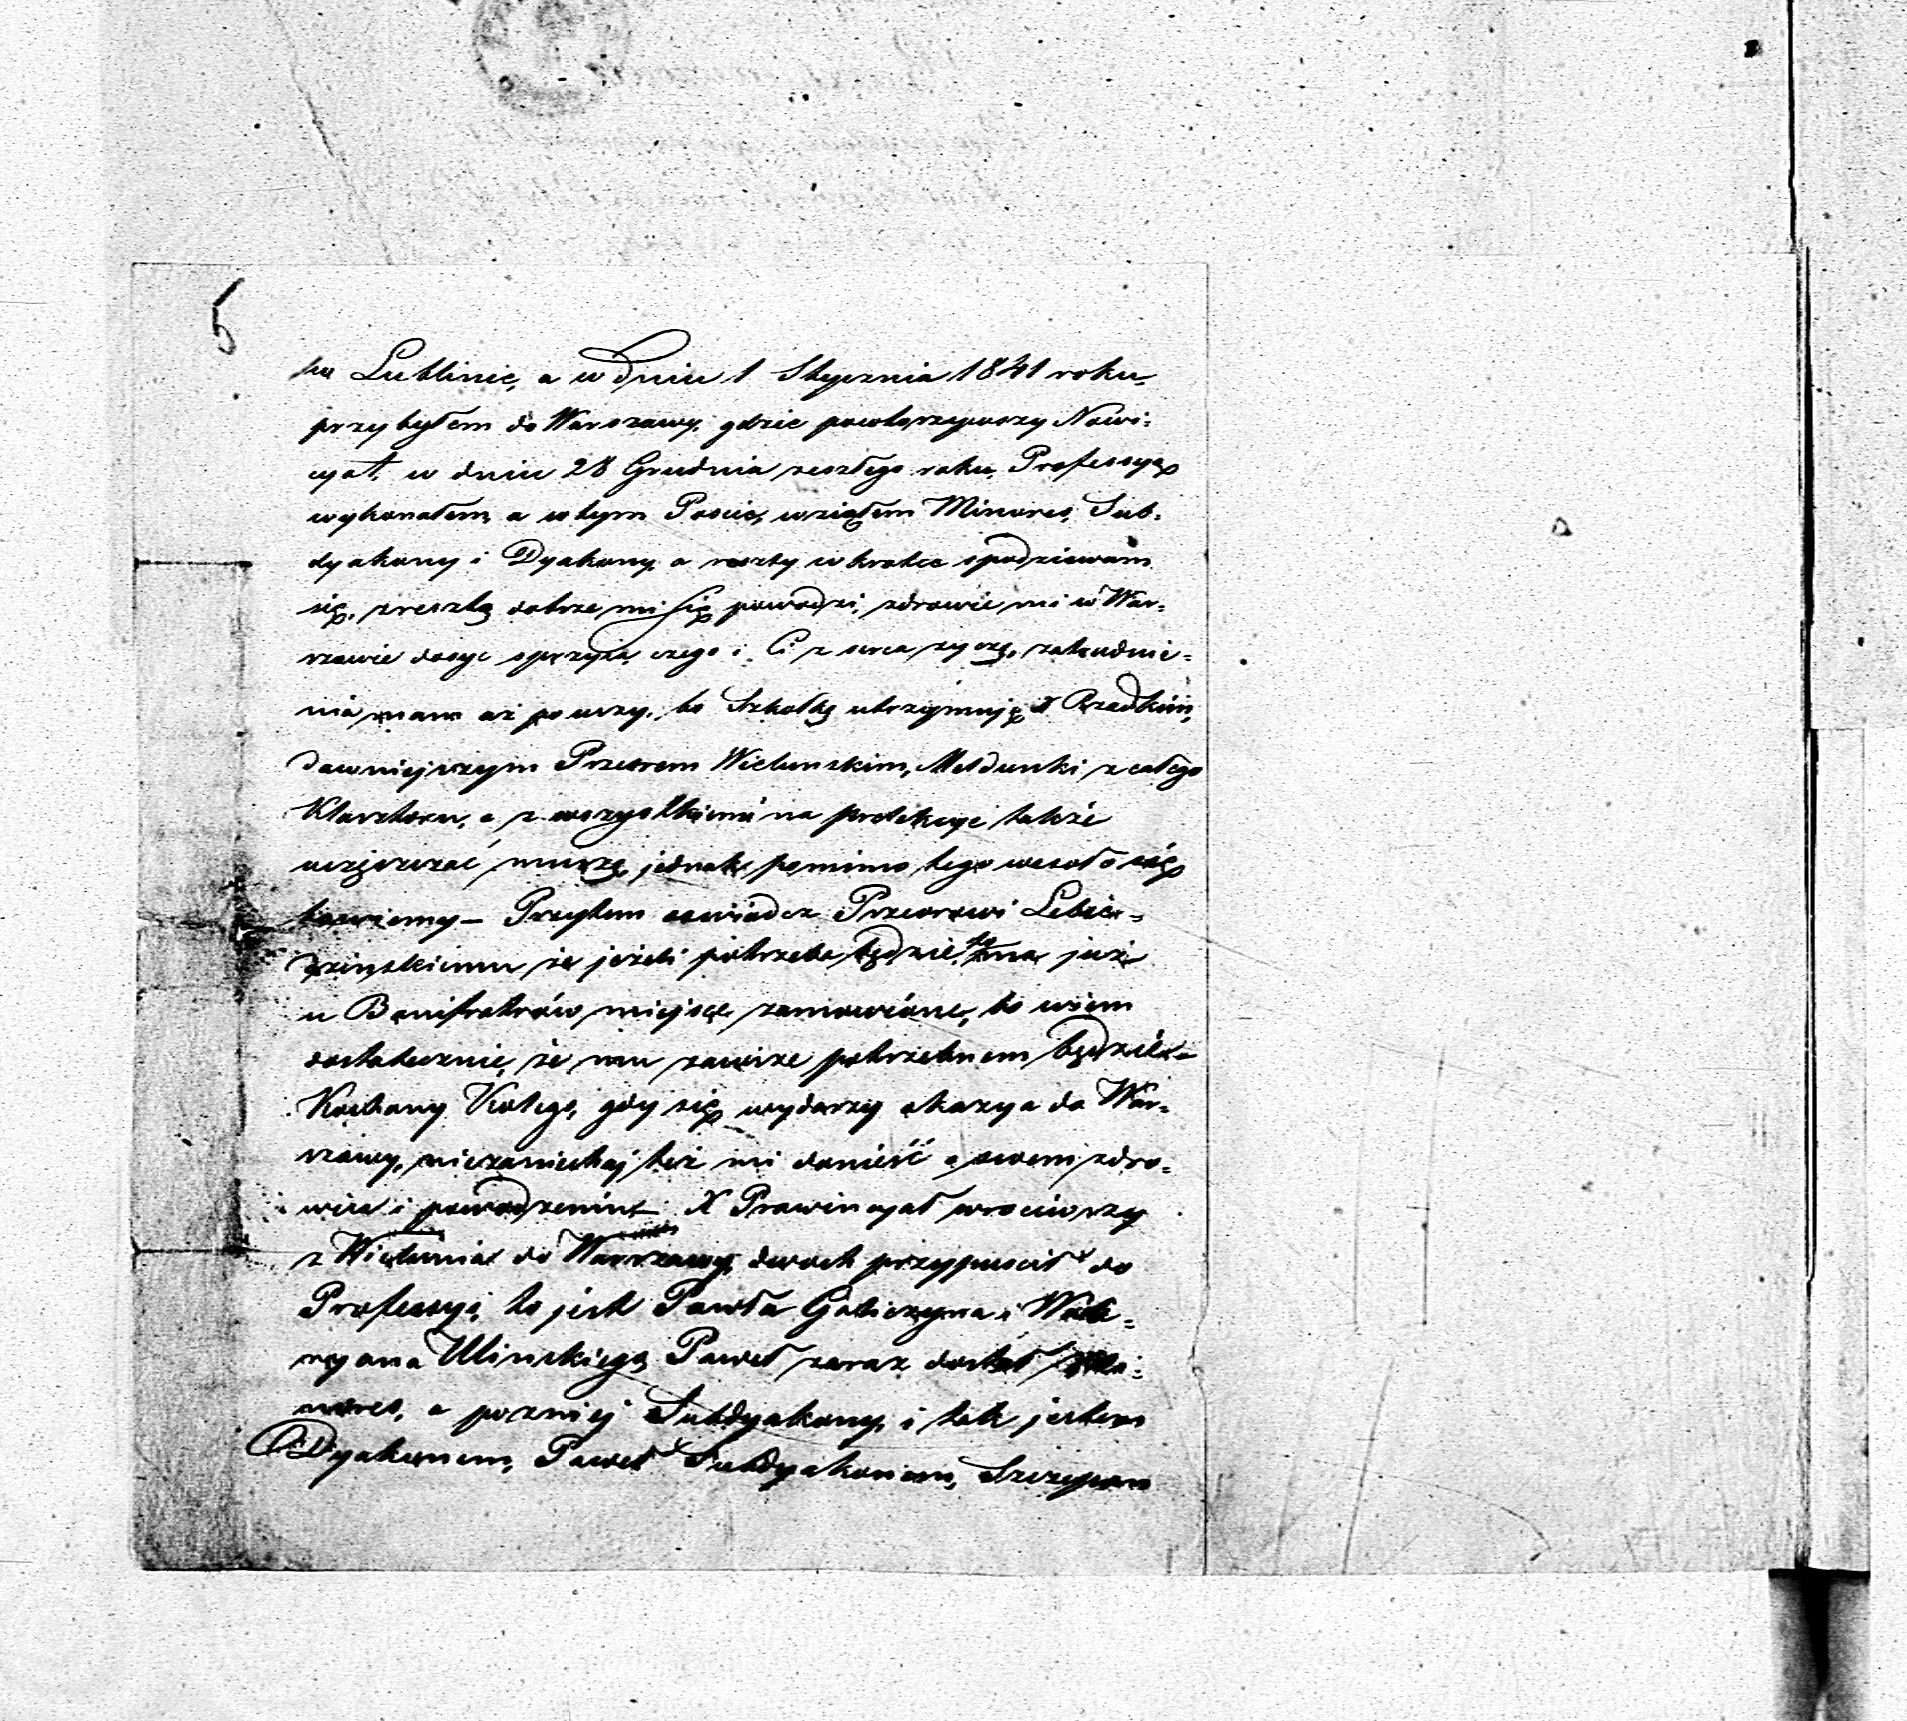 5
w Lublinie, a w dniu 1 Stycznia 1841 roku
przybyłem do Warszawy, gdzie powtorzywszy Nowi-
cyat, w dniu 28 Grudnia zeszłego roku, Professyą
wykonałem, a w tym Poście, wziąłem Minores, Sub-
dyakony i Dyakony, a reszty w krotce spodziewam
się, zresztą dobrze mi się powodzi, zdrowie mi w War-
szawie dosyc sprzyja, czego i Ci z serca zyczę, zatrudnie-
nia mam aż po uszy, bo Szkołkę utrzymuję X Rzadkim,
dawniejszym Przeorem Wielunskim, Meldunki z całego
Klasztoru, a z wszystkiemi na prelekcye także
uczęszczać muszę, jednak pomimo tego wesoło się
bawiemy – Przytem oswiadcz Przeorowi Lebie-
dzinskiemu że jeżeli potrzeba będzie, to ma już
u Bonifratrów miejsce zamowione, bo wiem
dostatecznie, że mu zawsze potrzebnem będzie –
Kochany Kolego, gdy się wydarzy okazya do War-
szawy, niezaniechaj też mi donieść o swem zdro-
wiu i powodzeniu – X Prowincyał wrociwszy
z Wielunia do Warszawy, dwoch przypuscił do
Professyi, to jest Pawła Gobiczyna i Wale-
ryana Ulinskiego, Paweł zaraz dostał Mi-
nores, a pozniej Subdyakony, i tak jestem
Dyakonem, Paweł Subdyakonem, Szczepan